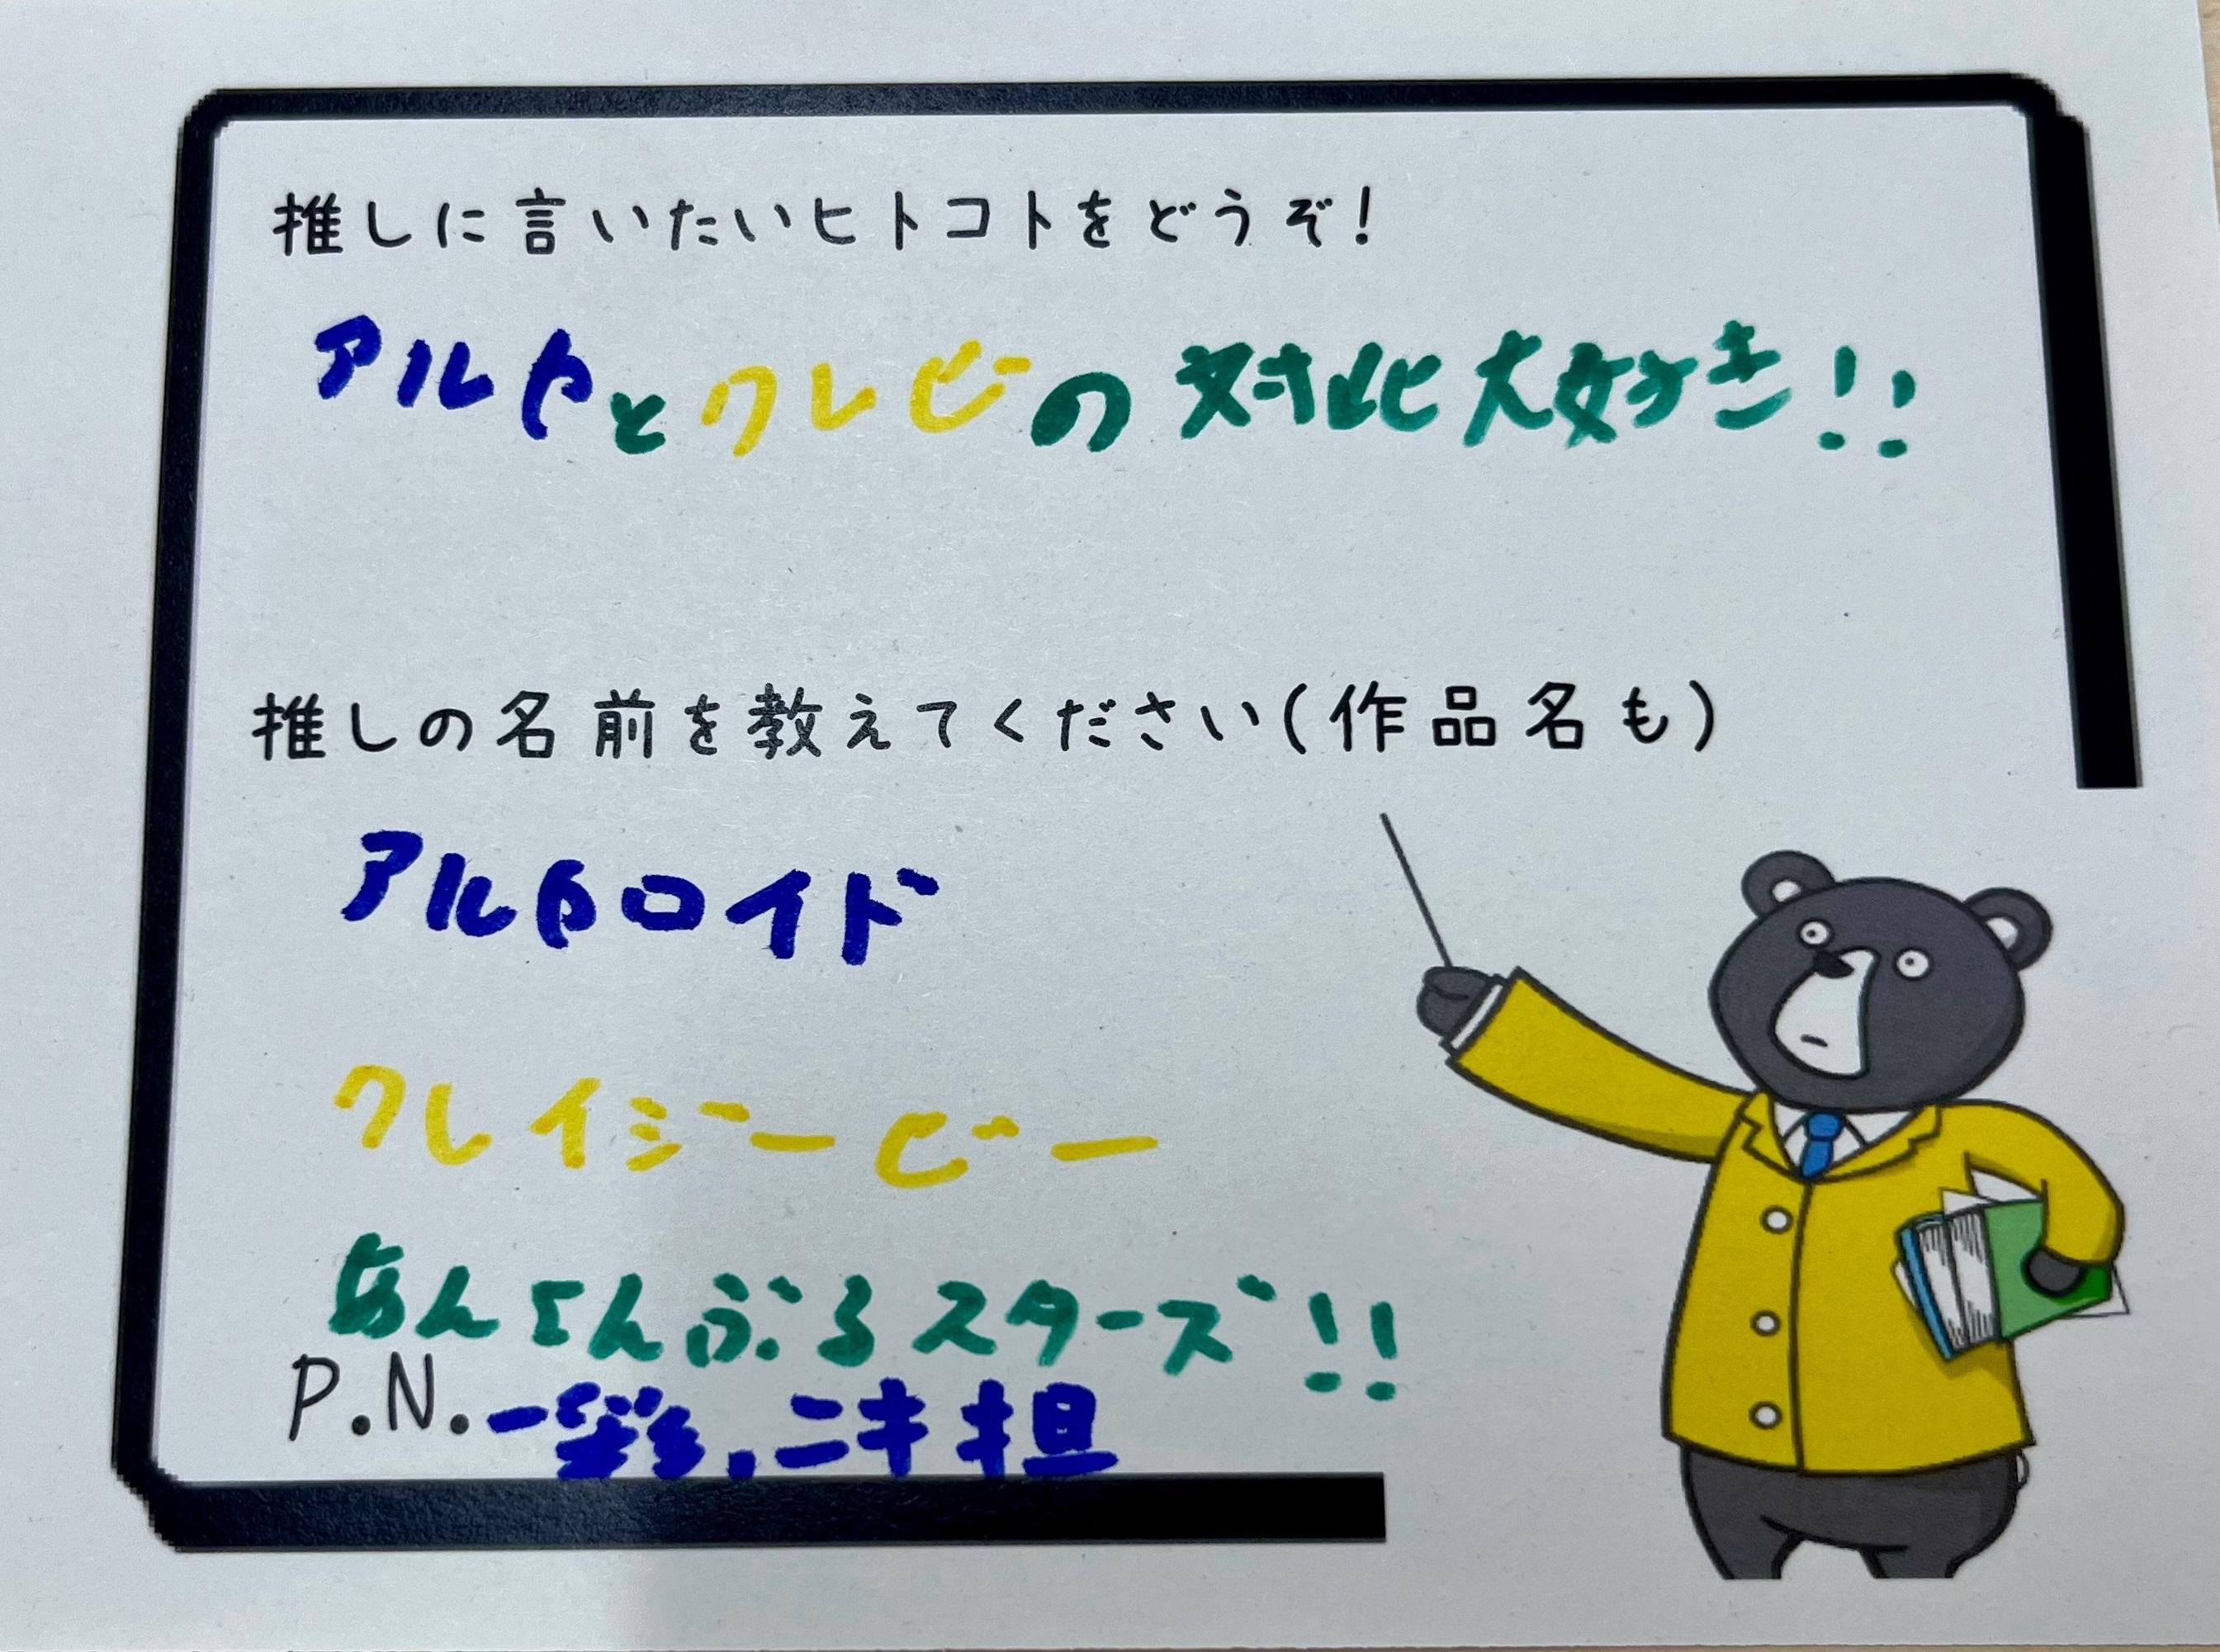 推しに言いたいヒトコトをどうぞ!
アルカとクレビの対比大好き!!
推しの名前を教えてください(作品名も)
アルカロイド
クレイジービー
あんさんぶるスターズ!!
P.N.一彩、ニキ担